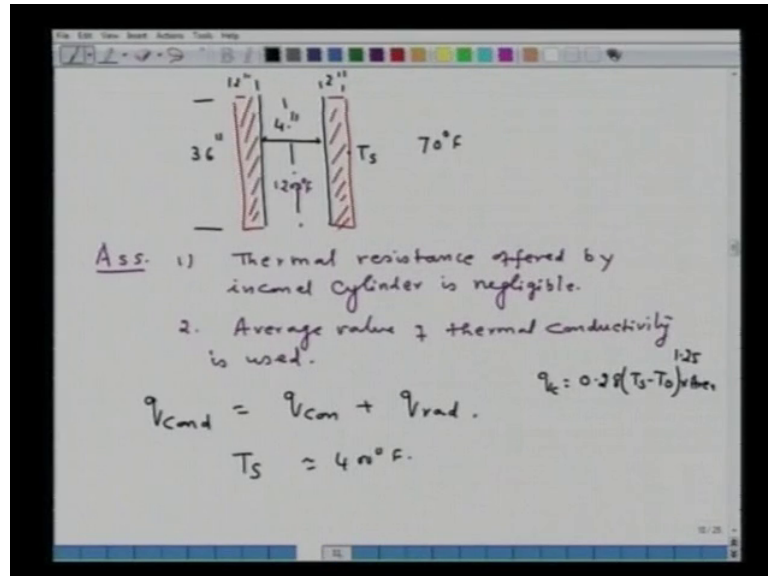 File Edit View Insert Actions Tools Help
12" 2"
4"
36" Ts 70°F
1200°F
Ass. 1) Thermal resistance offered by
inconel cylinder is negligible.
2. Average value of thermal conductivity
is used.
qc = 0.28(Ts-To)^1.25 x Area
qcond = qcon + qrad.
Ts ≈ 400°F.